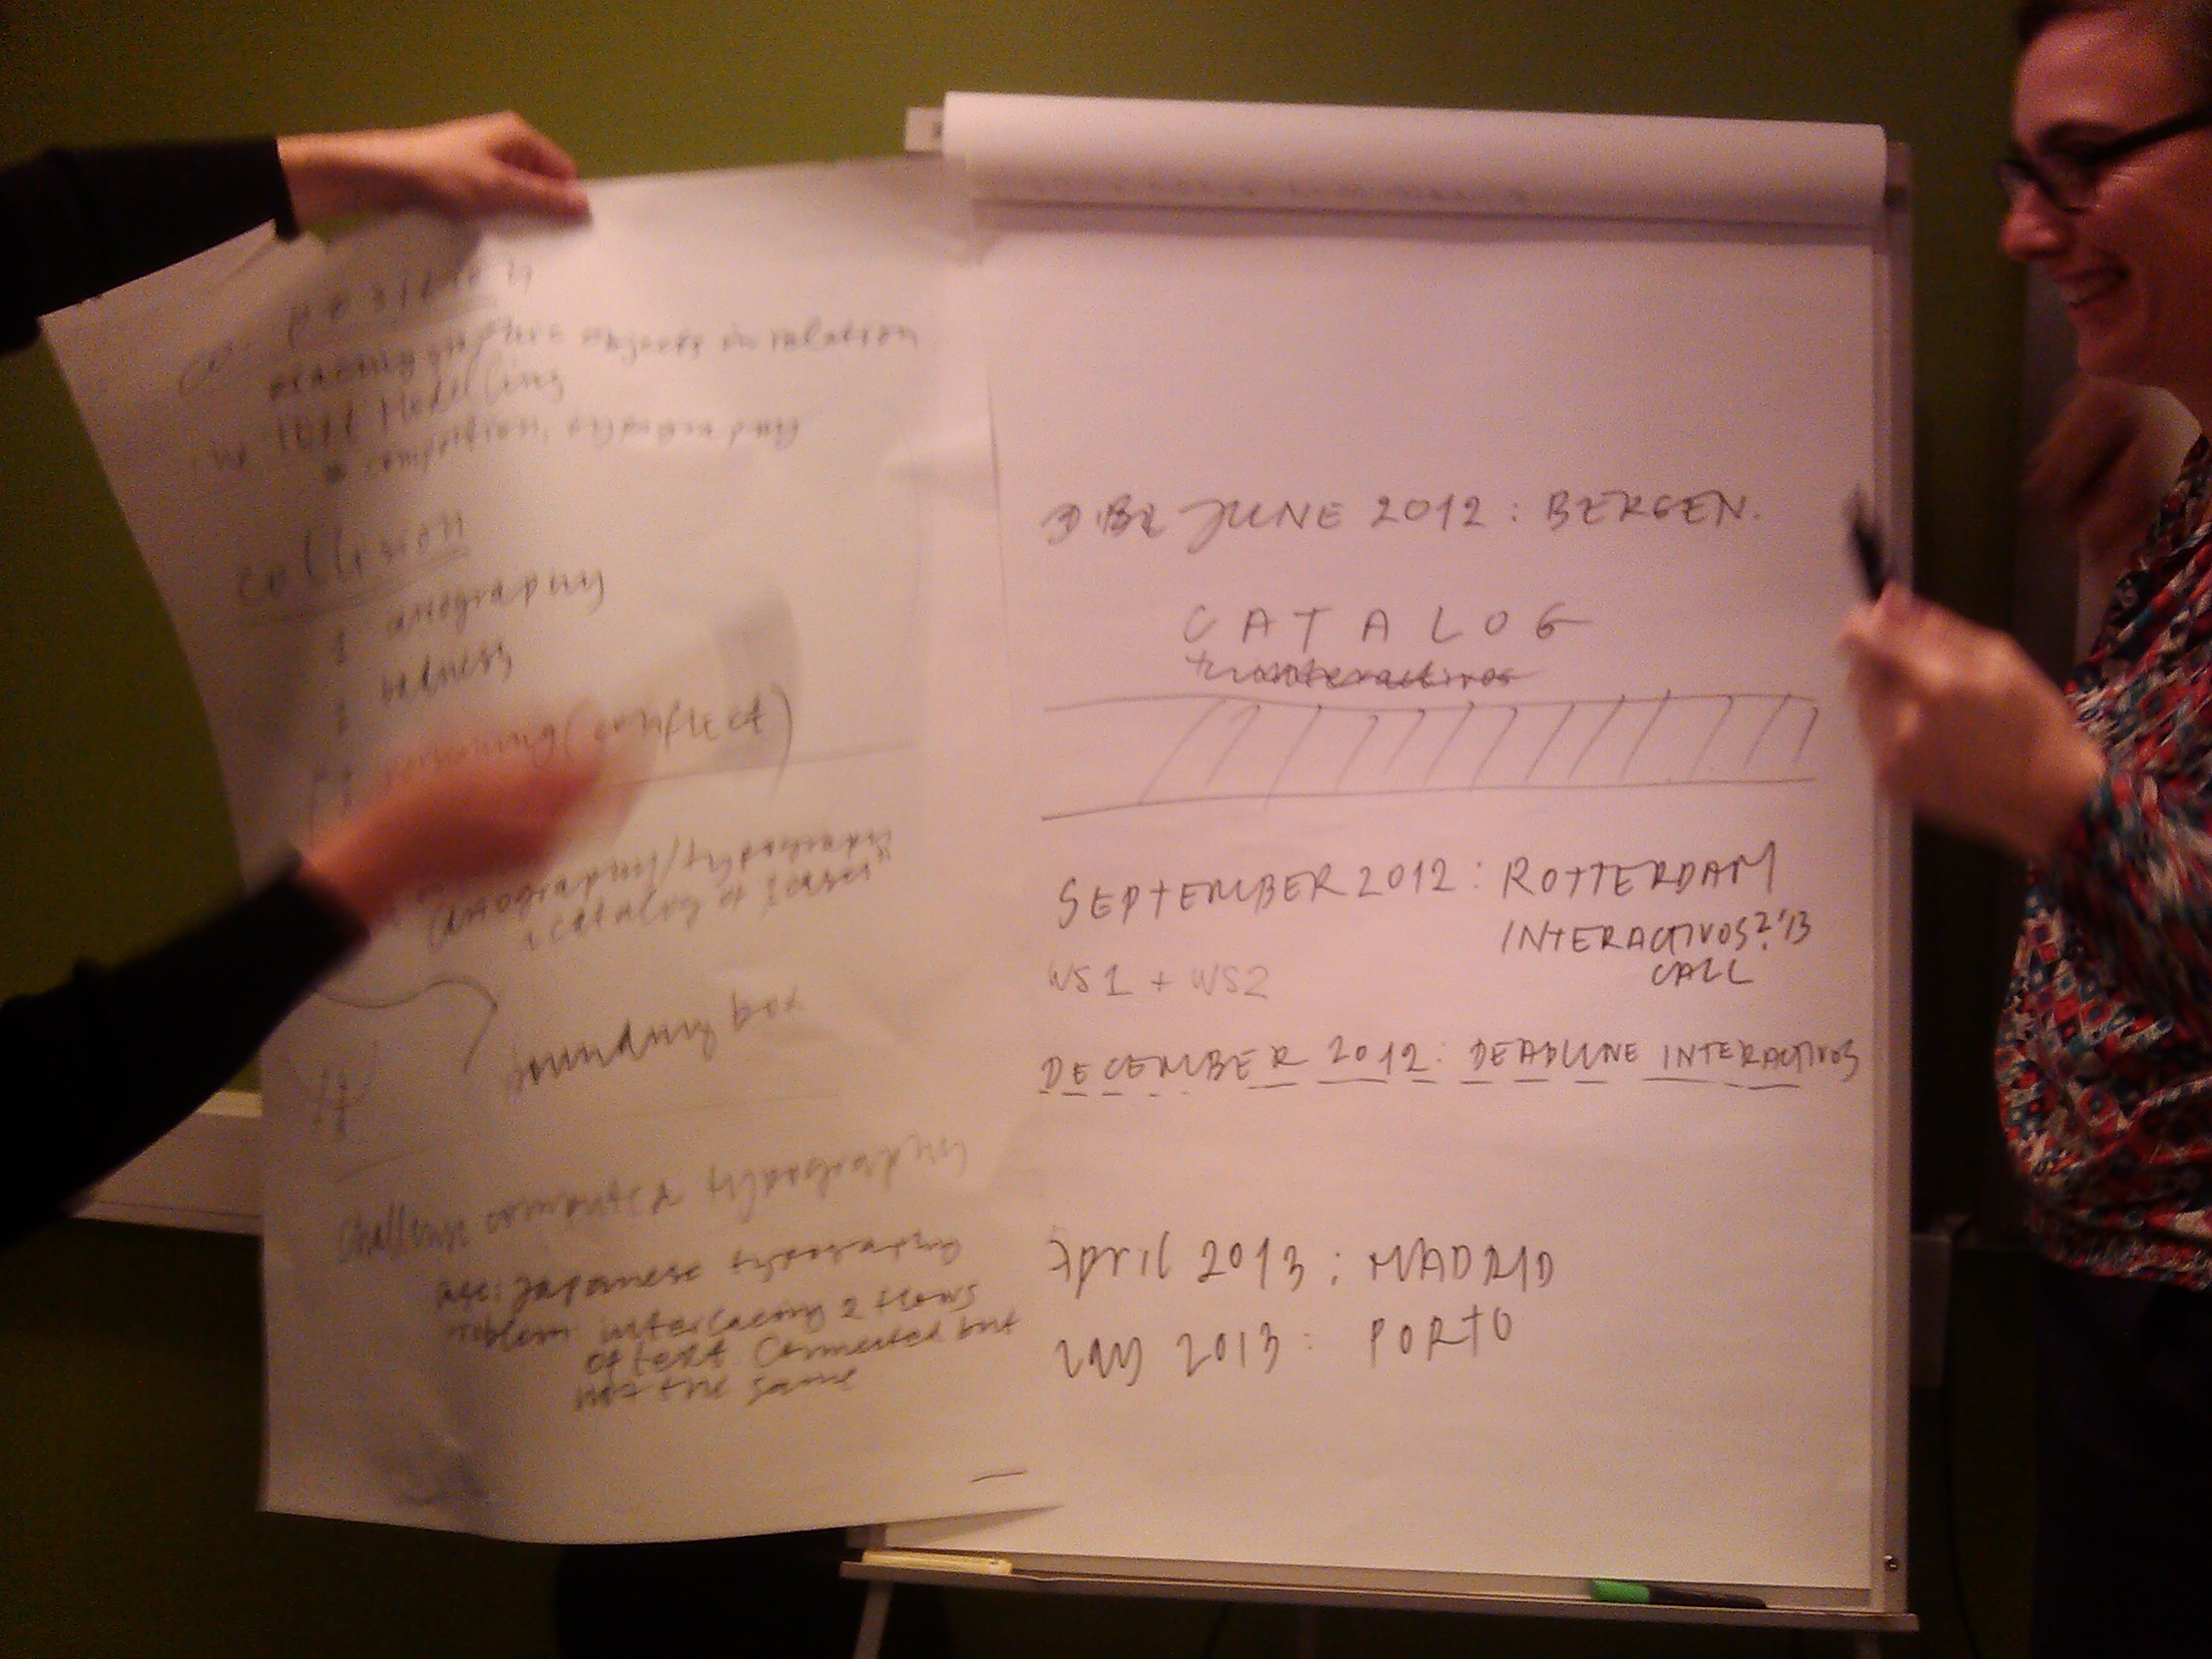 placing graphic objects in relation
Text Modelling
composition, typography
Collision
cartography
badness
versioning (conflict)
cartography/typography
"catalog of cases"
bounding box
Challenge computed typography
Japanese typography
problem interlacing 2 flows
of text connected but
not the same
JUNE 2012 : BERGEN.
CATALOG
SEPTEMBER 2012 : ROTTERDAM
INTERACTIVOS?'13
CALL
WS1 + WS2
DECEMBER 2012 : DEADLINE INTERACTIVOS
April 2013 : MADRID
2013 : PORTO